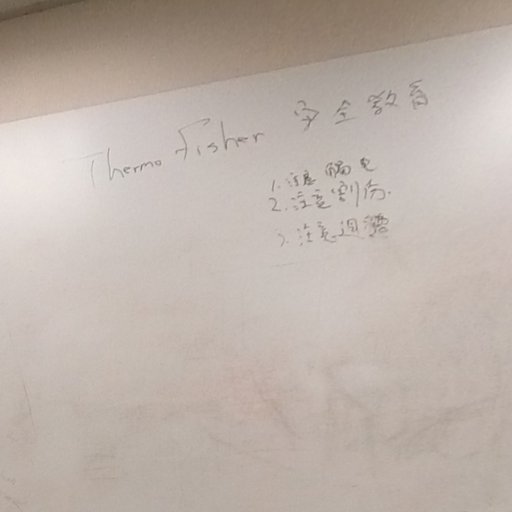 Thermo Fisher 安全教育
1. 注意觸電
2. 注意割傷.
3. 注意週遭